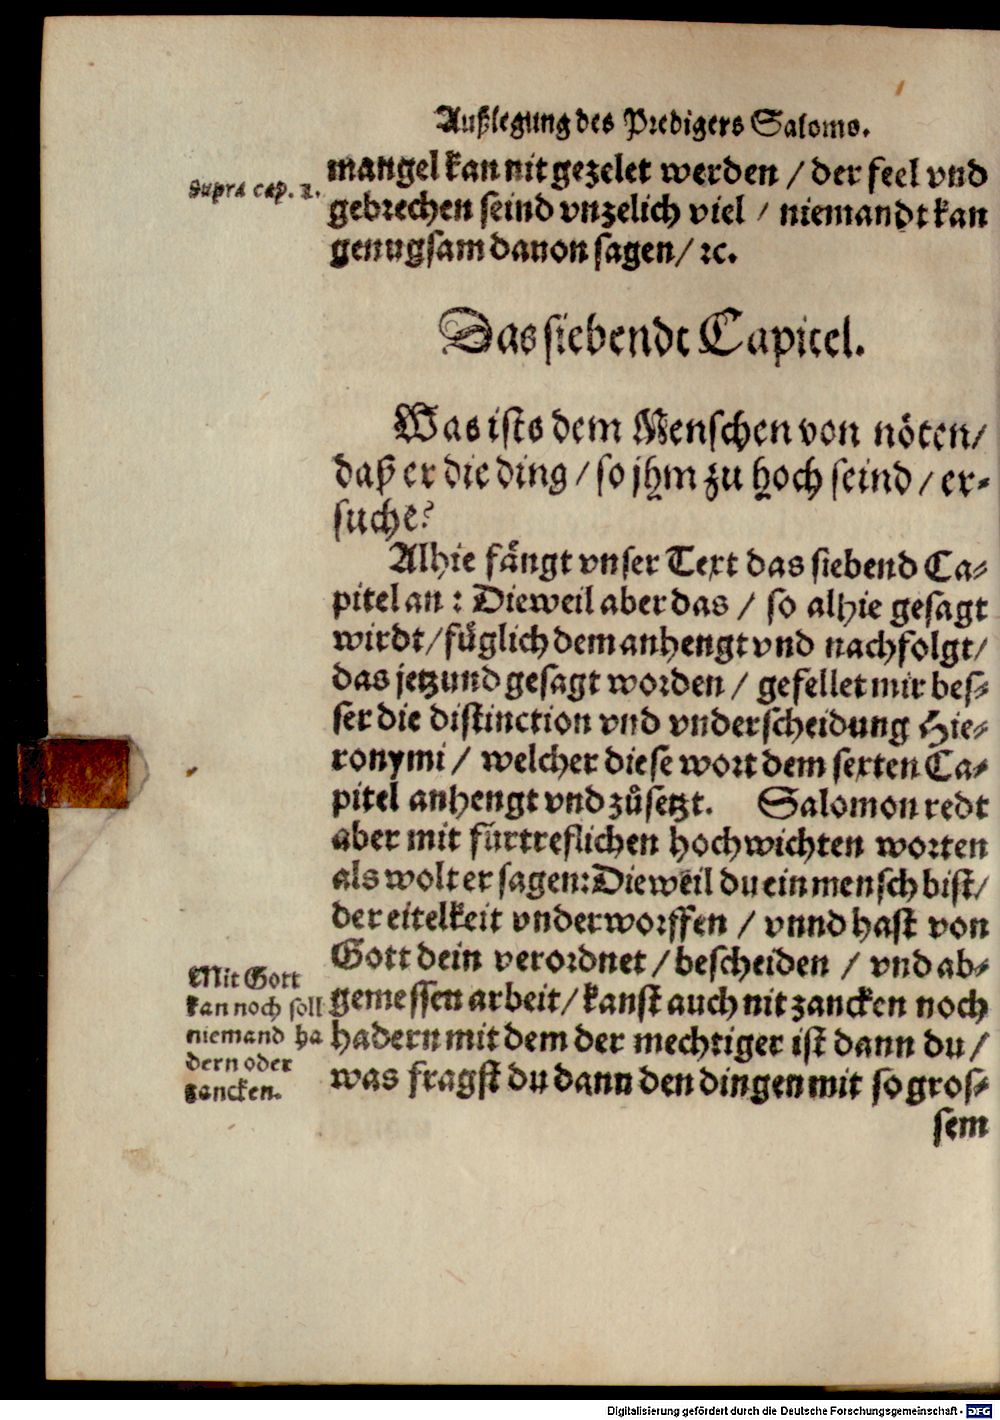 Außlegung des Predigers Salomo.
Supra cap. 1.
mangel kan nit gezelet werden / der feel vnd
gebrechen seind vnzelich viel / niemandt kan
genugsam dauon sagen / ꝛc.
Das siebendt Capitel.
Was ists dem Menschen von nöten /
daß er die ding / so jhm zu hoch seind / er-
suche?
Alhie fångt vnser Text das siebend Ca-
pitel an : Dieweil aber das / so alhie gesagt
wirdt / füglich dem anhengt vnd nachfolgt /
das jetzund gesagt worden / gefellet mir bes-
ser die distinction vnd vnderscheidung Hie-
ronymi / welcher diese wort dem sexten Ca-
pitel anhengt vnd zůsetzt. Salomon redt
aber mit fürtreflichen hochwichten worten
als wolt er sagen: Dieweil du ein mensch bist /
der eitelkeit vnderworffen / vnnd hast von
Gott dein verordnet / bescheiden / vnd ab-
gemessen arbeit / kanst auch nit zancken noch
hadern mit dem der mechtiger ist dann du /
was fragst du dann den dingen mit so gros-
sem
Mit Gott
kan noch soll
niemand ha
dern oder
zancken.
Digitalisierung gefördert durch die Deutsche Forschungsgemeinschaft - DFG